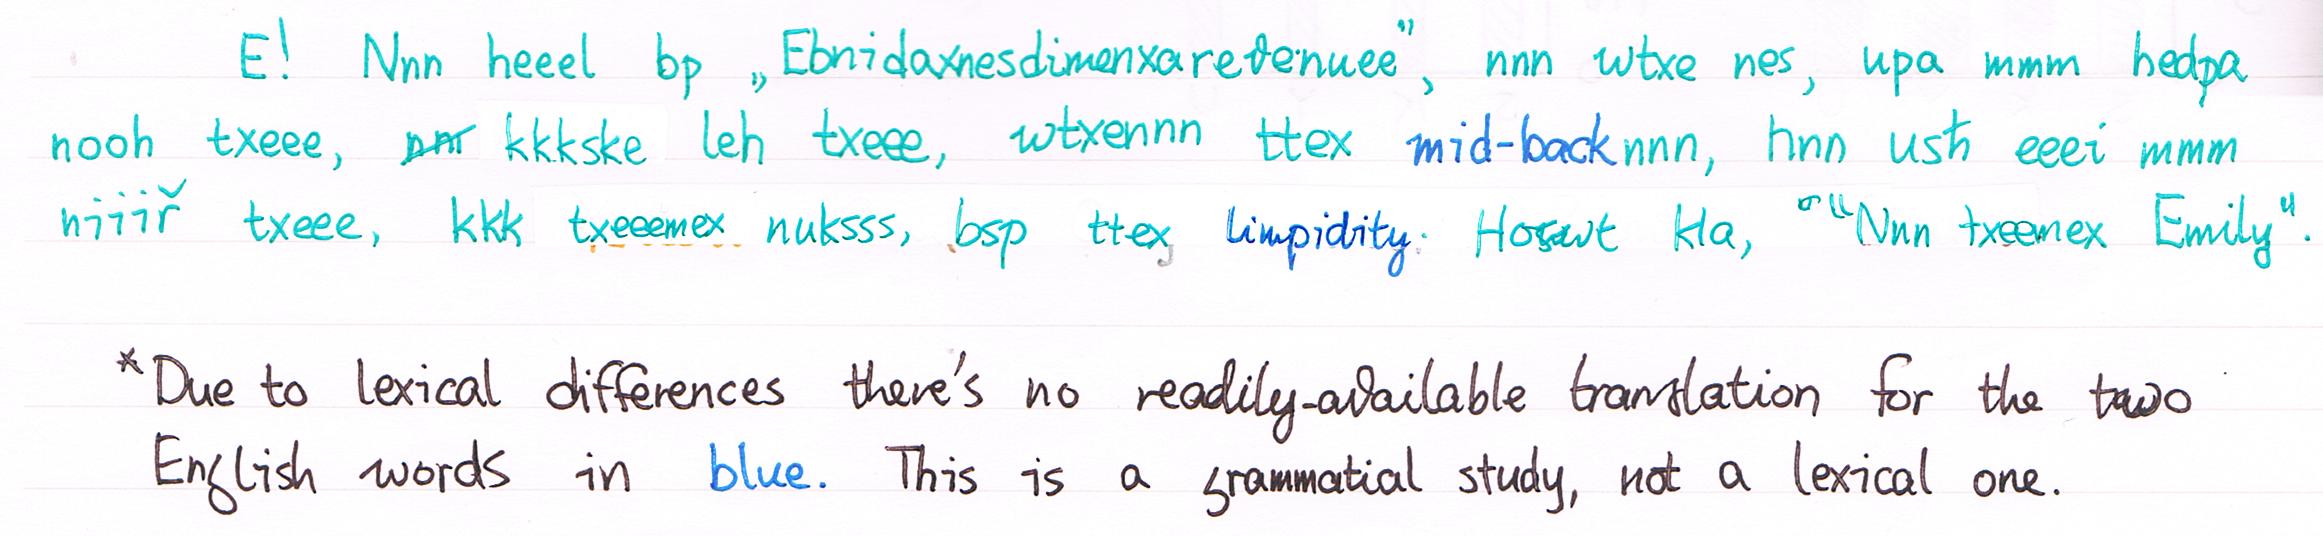 E! Nnn heeel bp „Ebnidaxnesdimenxaretenuee”, nnn wtxe nes, upa mmm hedpa
nooh txeee, kkkske leh txeee, wtxennn ttex mid-backnnn, hnn usħ eeei mmm
niiiř txeee, kkk txeeemex nuksss, bsp ttex limpidity. kla, “Nnn txeemex Emily”.
*Due to lexical differences there's no readily-available translation for the two
English words in blue. This is a grammatial study, not a lexical one.